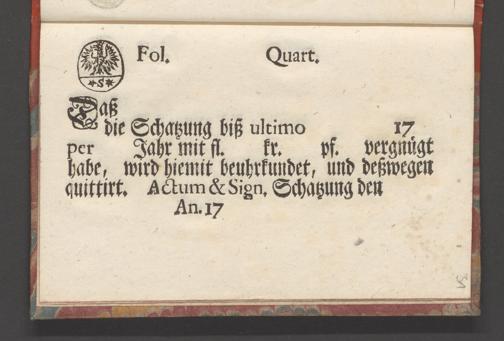 Fol. Quart.
*S*
Daß
die Schatzung biß ultimo 17
per Jahr mit fl. kr. pf. vergnügt
habe, wird hiemit beuhrkundet, und deßwegen
quittirt. Actum & Sign. Schatzung den
An. 17